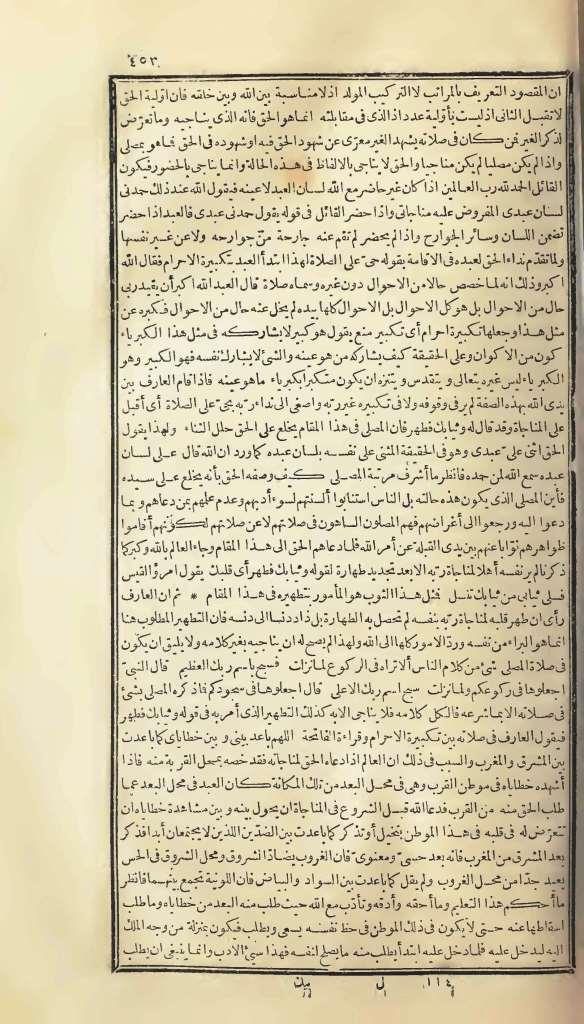 ٤٥٣
ان المقصود التعريف بالمراتب لا التركيب المولد اذ لا مناسبة بين الله وبين خلقه فان اولية الحق
لا تقبل الثانى اذ ليست بأولية عدد اذ الذى فى مقابلته انما هو الحق فانه الذى يناجيه وما تعرّض
لذكر الغير فمن كان فى صلاته يشهد الغير معرّى عن شهود الحق فيه او شهوده فى الحق فما هو بمصلى
واذ لم يكن مصليا لم يكن مناجيا والحق لا يناجى بالالفاظ فى هذه الحالة وانما يناجى بالحضور فيكون
القائل الحمد لله رب العالمين اذا كان غير حاضر مع الله لسان العبد لا عينه فيقول الله عند ذلك حمدنى
لسان عبدى المفروض عليه مناجاتى واذا حضر القائل فى قوله يقول حمدنى عبدى فالعبد اذا حضر
تضمن اللسان وسائر الجوارح واذا لم يحضر لم تقم عنه جارحة من جوارحه ولا عن غير نفسها
ولما تقدّم نداء الحق لعبده فى الاقامة بقوله حى على الصلاة لهذا ابتدأ العبد بتكبيرة الاحرام فقال الله
اكبر وذلك انه لما خصص حالا من الاحوال دون غيره وسماه صلاة قال العبد الله اكبر أن يقيد ربى
حال من الاحوال بل هو كل الاحوال بل الاحوال كلها بيده لم يخل عنه حال من الاحوال فكبره عن
مثل هذا وجعلها تكبيرة احرام أى تكبير منع يقول هو كبير لا يشاركه فى مثل هذا الكبرياء
كون من الاكوان وعلى الحقيقة كيف يشاركه من هو عينه والشئ لا يشارك نفسه فهو الكبير وهو
الكبرياء ليس غيره يتعالى ويتقدس ويتنزه ان يكون متكبرا بكبرياء ما هو عينه فاذا قام العارف بين
يدى الله بهذه الصفة لم ير فى وقوفه ولا فى تكبيره غير ربه واصغى الى نداء ربه بحى على الصلاة أى أقبل
على المناجاة وقد قال له وثيابك فطهر فان المصلى فى هذا المقام يخلع على الحق حلل الثناء ولهذا يقول
الحق اثنى على عبدى وهو فى الحقيقة المثنى على نفسه بلسان عبده كما ورد ان الله قال على لسان
عبده سمع الله لمن حمده فانظر ما أشرف مرتبة المصلى كيف وصفه الحق بأنه يخلع على سيده
فأين المصلى الذى يكون هذه حالته بل الناس استنابوا ألسنتهم لسوء أدبهم وعدم علمهم بمن دعاهم وبما
دعوا اليه ورجعوا الى أغراضهم فهم المصلون الساهون فى صلاتهم لا عن صلاتهم لكونهم أقاموا
ظواهرهم نوّابا عنهم بين يدى القبلة عن أمر الله فلما دعاهم الحق الى هذا المقام وجاء العالم بالله وكبر كما
ذكرنا لم ير نفسه أهلا لمناجاة ربه الا بعد تجديد طهارة لقوله وثيابك فطهر أى قلبك يقول امرؤ القيس
فسلى ثيابى من ثيابك تنسل فمثل هذا الثوب هو المأمور بتطهيره فى هذا المقام * ثم ان العارف
رأى ان طهر قلبه لمناجاة ربه بنفسه لم تحصل به الطهارة بل ذاد دنسا الى دنسه فان التطهير المطلوب هنا
انما هو البراءة من نفسه وردّ الامور كلها الى الله ولهذا لم يصح له ان يناجيه بغير كلامه ولا يليق ان يكون
فى صلاة المصلى شئ من كلام الناس ألا تراه فى الركوع لما نزلت فسبح باسم ربك العظيم قال النبىّ
اجعلوها فى ركوعكم ولما نزلت سبح اسم ربك الاعلى قال اجعلوها فى سجودكم فما ذكره المصلى بشئ
فى صلاته الا بما شرعه فالكل كلامه فلا يناجى الا به كذلك التطهير الذى أمر به فى قوله وثيابك فطهر
فيقول العارف فى صلاته بين تكبيرة الاحرام وقراءة الفاتحة اللهم باعد بينى وبين خطاياى كما باعدت
بين المشرق والمغرب والسبب فى ذلك ان العالم اذا دعاه الحق لمناجاته فقد خصه بمحل القربة منه فاذا
أشهده خطاياه فى موطن القرب وهى فى محل البعد من تلك المكانة كان العبد فى محل البعد عما
طلب الحق منه من القرب فدعا الله قبل الشروع فى المناجاة ان يحول بينه وبين مشاهدة خطاياه ان
تتعرّض له فى قلبه فى هذا الموطن بتخيل أو تذكر كما باعدت بين الضدّين اللذين لا يجتمعان أبدا فذكر
بعد المشرق من المغرب فانه بعد حسىّ ومعنوىّ فان الغروب يضادّ الشروق ومحل الشروق فى الحس
بعيد جدّا من محل الغروب ولم يقل كما باعدت بين السواد والبياض فان اللونية تجمع بينهما فانظر
ما أحكم هذا التعليم وما أحقه وأدقه وتأدّب مع الله حيث طلب منه البعد من خطاياه وما طلب
اسقاطها عنه حتى لا يكون فى ذلك الموطن فى حظ نفسه يسعى ويطلب فيكون بمنزلة من وجه الملك
اليه ليدخل عليه فلما دخل عليه ابتدأ يطلب منه ما يصلح لنفسه فهذا سيئ الادب وانما ينبغى ان يطلب
١١٤ ل